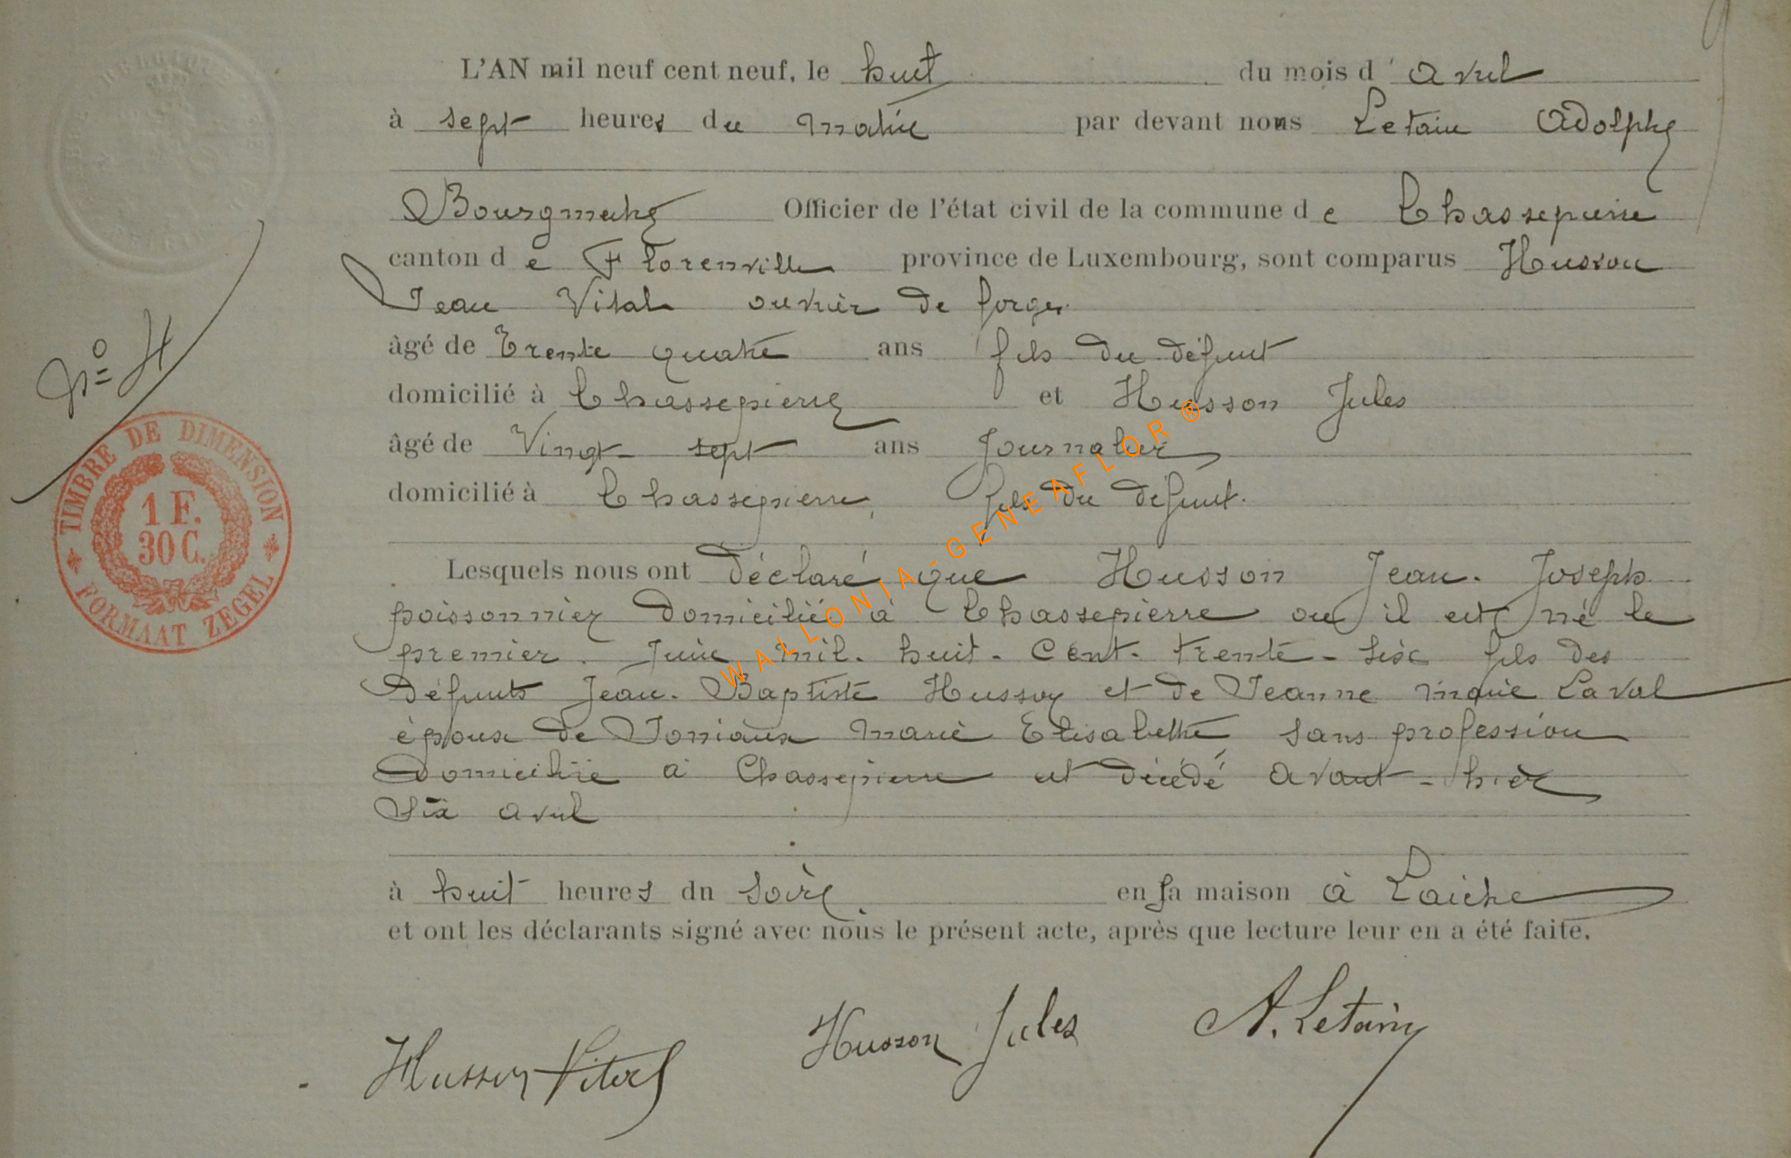 L'AN mil neuf cent neuf, le huit du mois d'avril
à sept heures du matin par devant nous Letain Adolphe
Bourgmestre Officier de l'état civil de la commune de Chassepierre
canton de Florenville province de Luxembourg, sont comparus Husson
Jean Vital ouvrier de forges
N° 4
âgé de Trente quatre ans fils du défunt
domicilié à Chassepierre et Husson Jules
âgé de Vingt-sept ans Journalier
domicilié à Chassepierre, fils du défunt.
Lesquels nous ont déclaré que Husson Jean-Joseph
poissonnier domicilié à Chassepierre ou il est né le
premier Juin mil-huit-cent-trente-six fils des
défunts Jean-Baptiste Husson et de Jeanne Marie Laval
époux de Toniaux Marie Elisabeth sans profession
domiciliée à Chassepierre est décédé avant-hier
Six avril
à huit heures du soir en sa maison à Laiche
et ont les déclarants signé avec nous le présent acte, après que lecture leur en a été faite.
Husson Vital Husson Jules A. Letain
TIMBRE DE DIMENSION
1 F.
30 C.
FORMAAT ZEGEL
WALLONIA-GENEAFLOR®